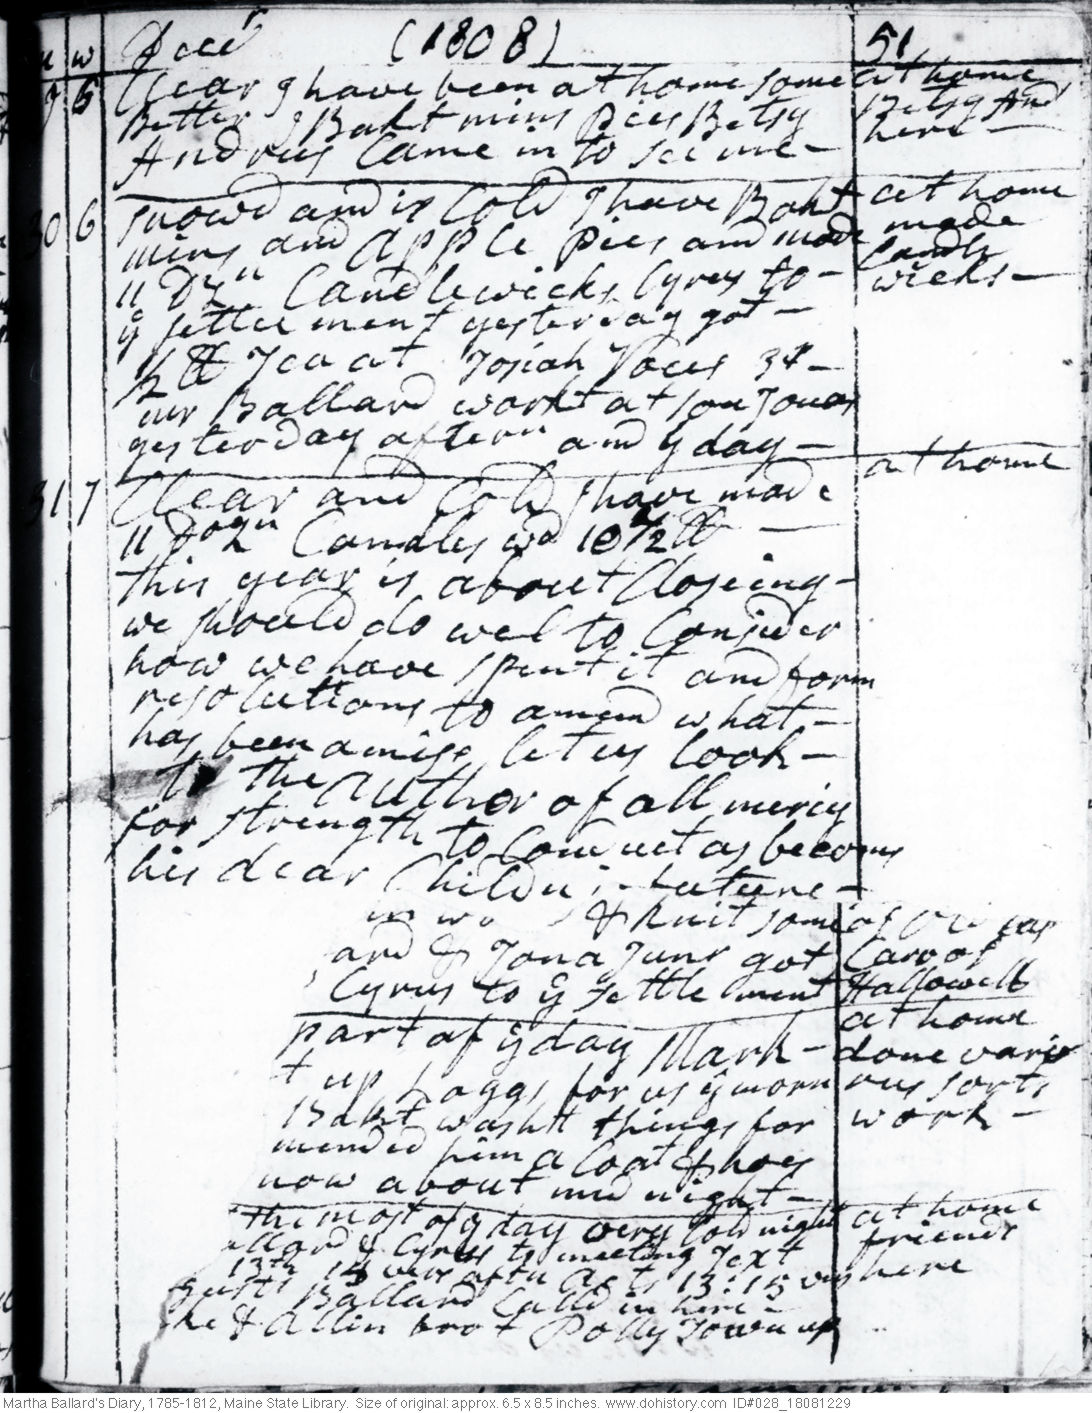 m w Decr (1808) 51
9 5 Clear I have been at home some at home
Better I Bakt mins Pies Betsy Betsy And
Andrus Came in to see me - here -
30 6 snowd and is Cold I have Bakt at home
mins and Apple Pies and made made
11 Dzn Candlewicks Cyrus to - Candle
ye settlement yesterday got - wicks -
½ ℔ Tea at Josiah 3/ -
mr Ballard workt at son Jonas
yesterday aftern and ye day -
31 7 Clear and Cold I have made at home
11 dozn Candles wd 10½ ℔ -
this year is about Closeing -
we should do wel to Consider
how we have spent it and form
resolutions to amend what -
has been amiss, let us look -
to the Author of all mercy
for strength to Conduct as becoms
his dear Childn in future -
& knit some
ard & Jona Junr got Carvr of
Cyrus to ye settlement Hallowell
part of ye day Mark - at home
t up hoggs for us ye morn done vari
Bakt washt things for ous sorts
mended him a Coat & hoes work -
now about mid night -
the most of ye day very Cold night at home
allard & Cyrus to meeting Text friends
13th 14 vers aftn Acts 13: 15 vers here
Ballard Calld in here -
he & Allin brot Polly Town up
Martha Ballard's Diary, 1785-1812, Maine State Library. Size of original: approx. 6.5 x 8.5 inches. www.dohistory.com ID#028_18081229